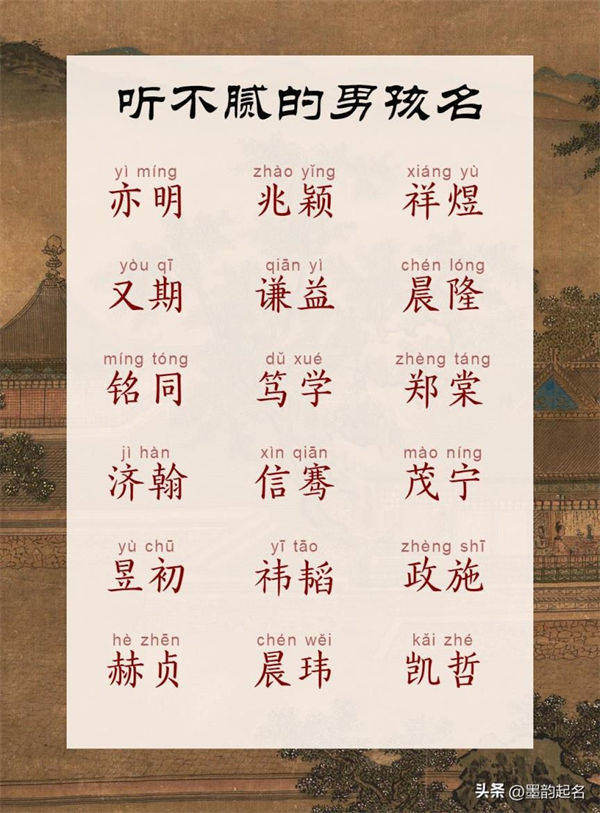 听不腻的男孩名
yì míng zhào yǐng xiáng yù
亦明 兆颖 祥煜
yòu qī qiān yì chén lóng
又期 谦益 晨隆
míng tóng dǔ xué zhèng táng
铭同 笃学 郑棠
jì hàn xìn qiān mào níng
济翰 信骞 茂宁
yù chū yī tāo zhèng shī
昱初 祎韬 政施
hè zhēn chén wěi kǎi zhé
赫贞 晨玮 凯哲
头条 @墨韵起名